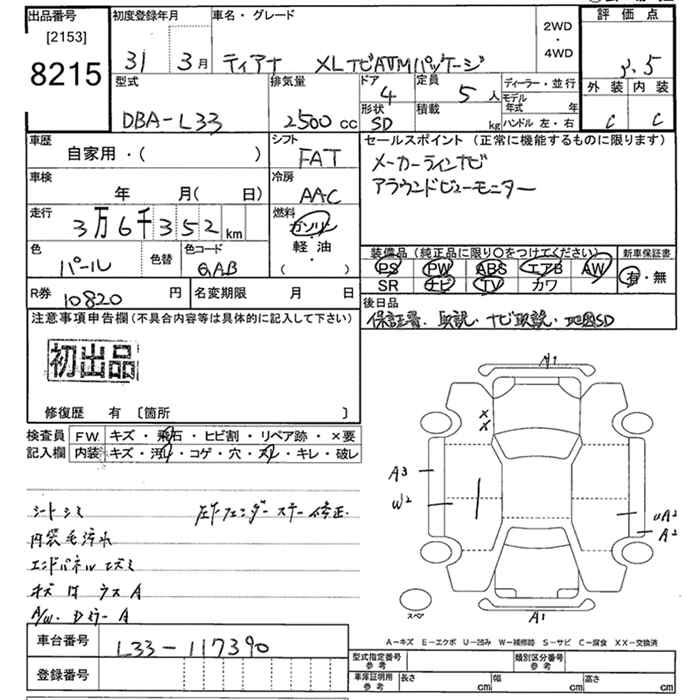 出品番号
[2153]
8215
初度登録年月
31 3月
車名・グレード
ティアナ XLナビAVMパッケージ
2WD
・
4WD
評価点
3.5
外装 内装
C C
型式
DBA-L33
排気量
2500cc
ドア
4
形状
SD
定員
5人
積載
kg
ディーラー・並行
モデル年式 年
ハンドル 左・右
車歴
自家用・( )
シフト
FAT
車検
年 月( 日)
冷房
AAC
走行
3万6千352km
燃料
ガソリン
軽油・
( )
色
パール
色替
色コード
QAB
R券
10820円
名変期限 月 日
セールスポイント (正常に機能するものに限ります)
メーカーラインナビ
アラウンドビューモニター
装備品(純正品に限り○をつけてください)
PS PW ABS エアB AW
SR ナビ TV カワ
新車保証書
有・無
後日品
保証書、取説、ナビ取説、地図SD
注意事項申告欄(不具合内容等は具体的に記入して下さい)
初出品
修復歴 有 [箇所 ]
検査員
記入欄
F.W. キズ・飛石・ヒビ割・リペア跡・×要
内装 キズ・汚れ・コゲ・穴・スレ・キレ・破レ
シートシミ 左Fフェンダーステー修正
内装毛汚れ
エンドパネルエズミ
キズ ウス A
A/W. Dミラー A
A1
X
X
A3
W2
UA2
A2
スペア
A1
A-キズ E-エクボ U-凹み W-補修跡 S-サビ C-腐食 XX-交換済
車台番号
L33-117390
登録番号
型式指定番号
参考
類別区分番号
参考
車庫証明用
参考
長さ cm
幅 cm
高さ cm